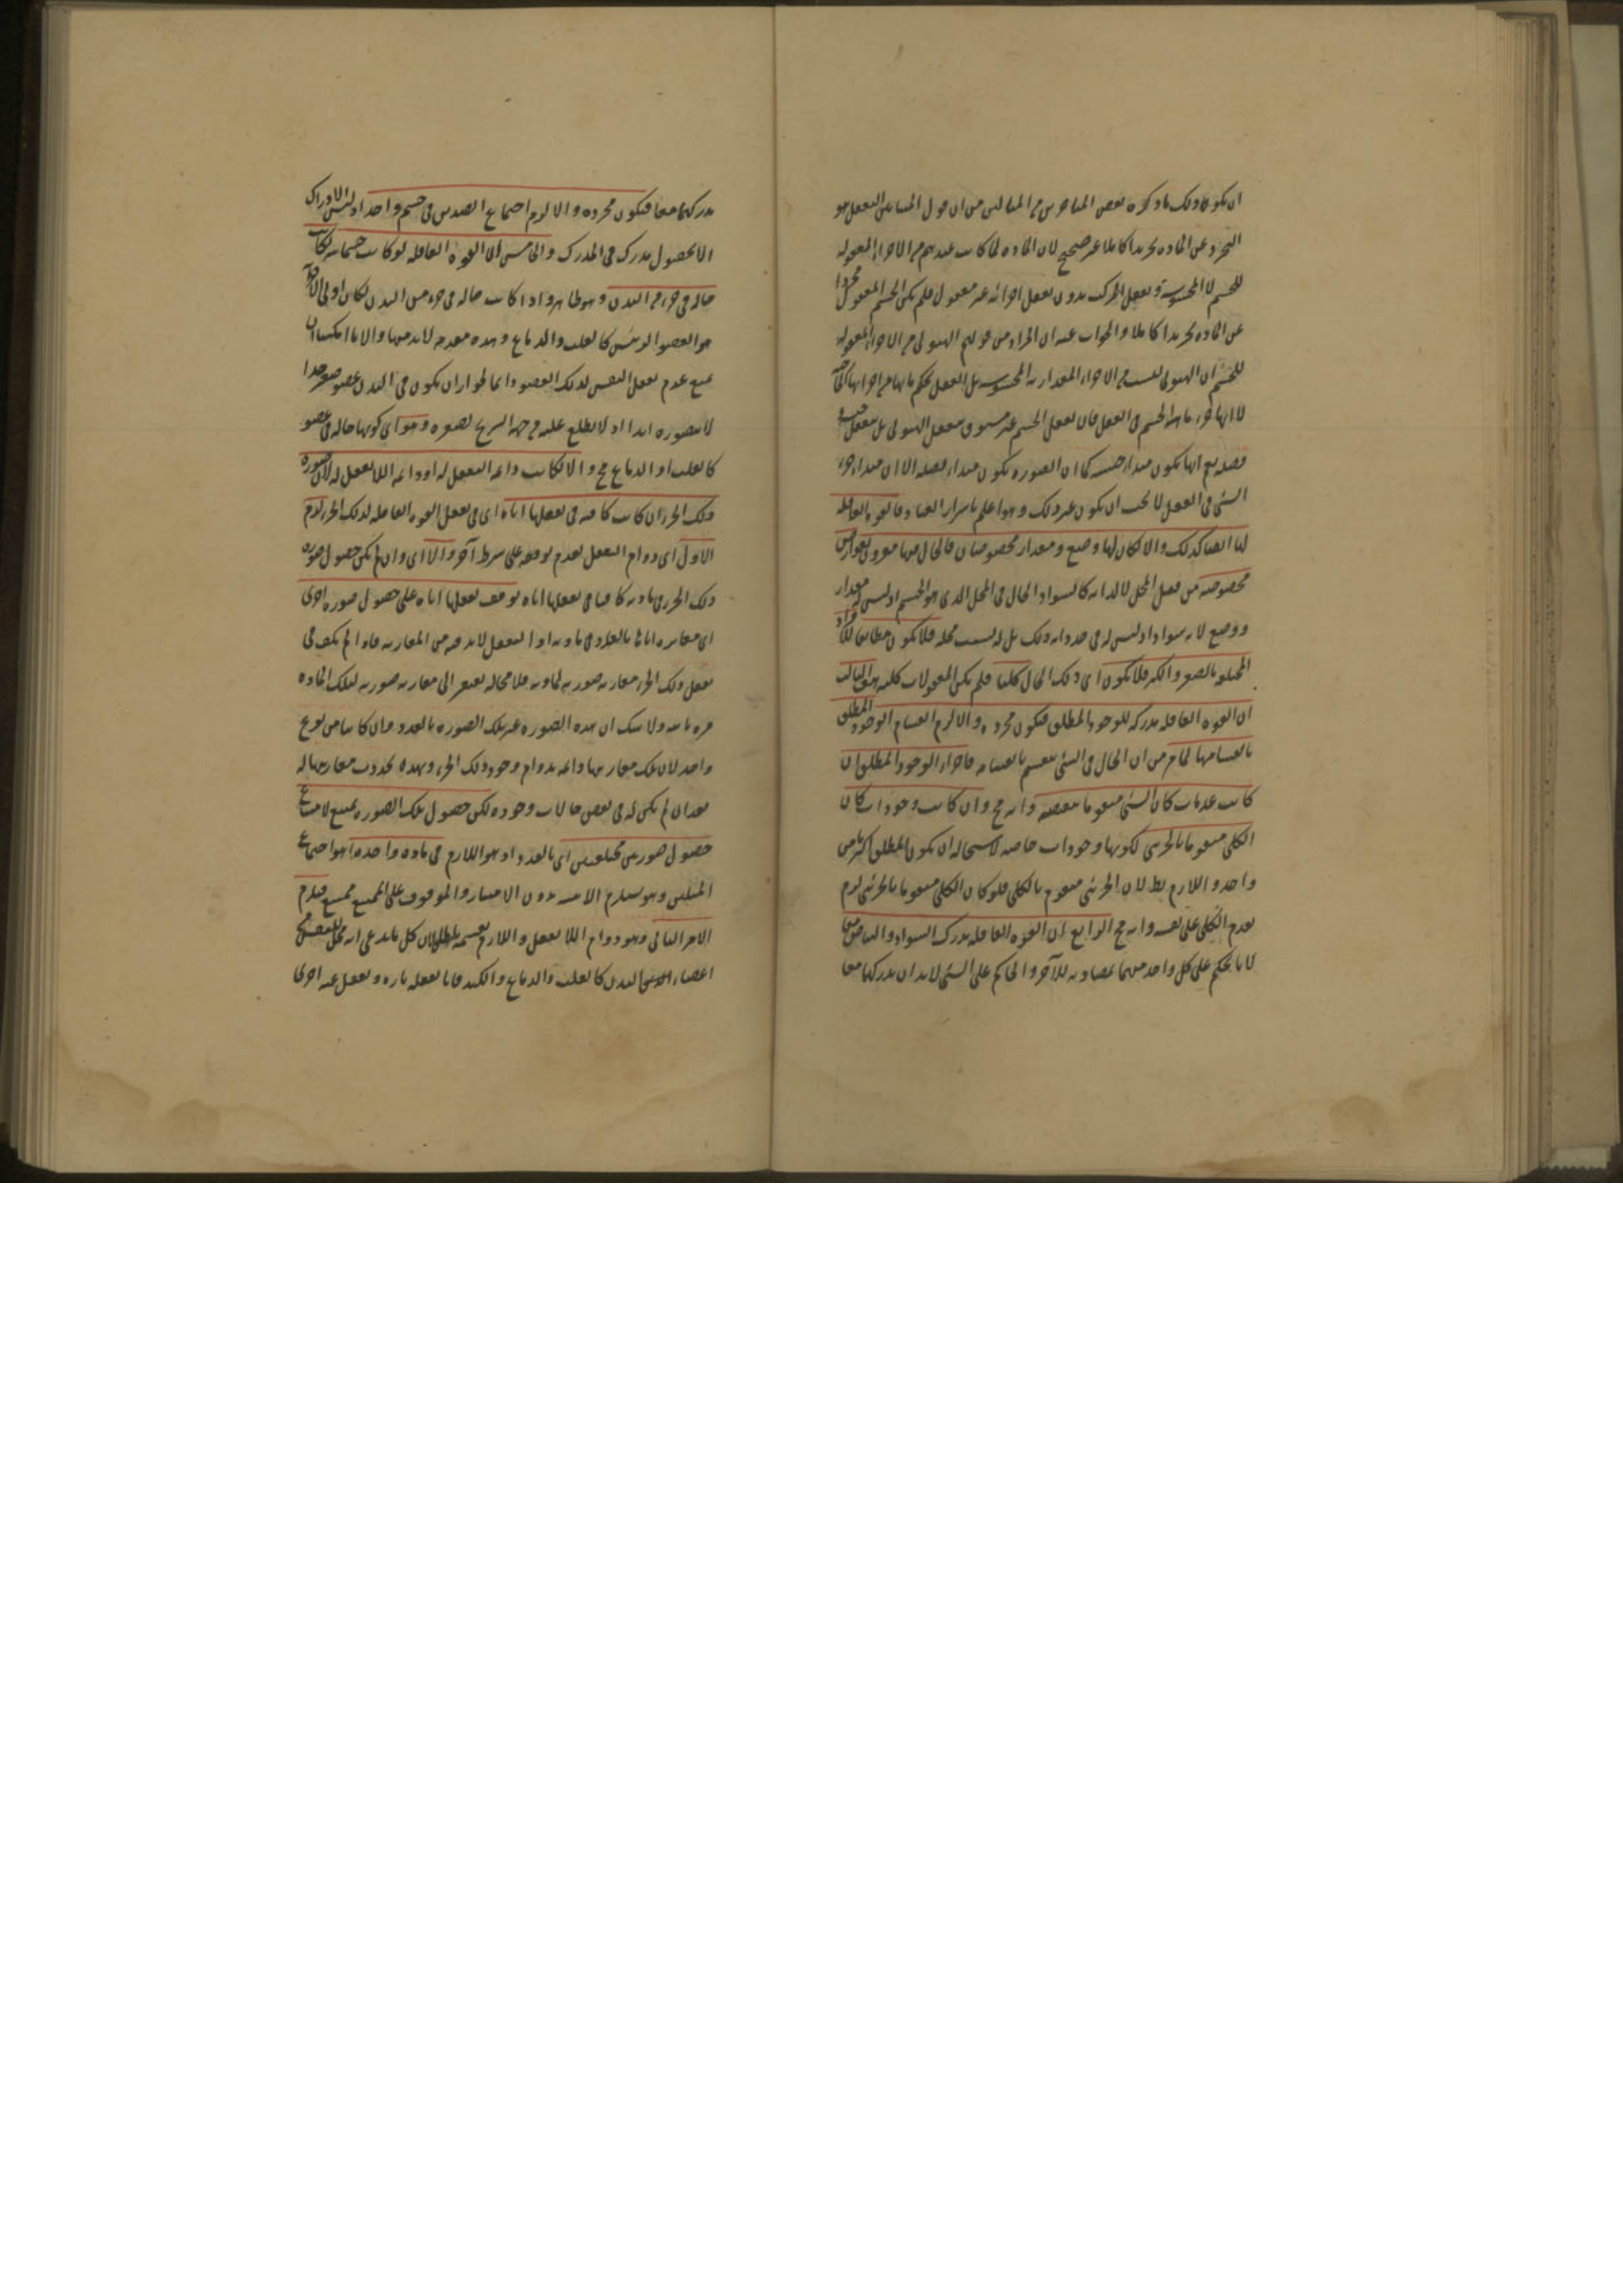 ان يكون ذلك ما ذكره بعض المتأخرين من ان قول التعقل هو
التجرد عن المادة تجريدا كاملا غير صحيح لان المادة لما كانت عندهم من الاجزاء المعقولة
للجسم لا المحسوسة وتعقل المركب بدون تعقل اجزائه غير معقول فلم يكن الجسم المعقول مجردا
عن المادة تجريدا كاملا والجواب عنه ان المراد من قولهم الهيولى من الاجزاء المعقولة
للجسم ان الهيولى ليست من الاجزاء المقدارية المحسوسة بل العقل يحكم بانها من اجزائها
لا انها جزء ماهية الجسم في العقل فان تعقل الجسم غير مسبوق بتعقل الهيولى بل بتعقل جنسه و
فصله نعم انها تكون مبدأ جنسه كما ان الصورة تكون مبدأ فصله الا ان مبدأ جزء
الشئ في العقل لا يجب ان يكون غير ذلك وهو اعلم باسرار العباد فالقوة العاقلة
لها ايضا كذلك والا لكان لها وضع ومقدار مخصوصان فالحال فيها مقرون بعوارض
مخصوصة من قبل المحل لا لذاته كالسواد الحال في المحل الذي هو الجسم اذ ليس له مقدار
ووضع لانه سواد اذ ليس له في حد ذاته ذلك بل له بسبب محله فلا يكون مطابقا للافراد
المختلفة بالصغر والكبر فلا يكون اي ذلك الحال كليا فلم يكن المعقولات كلية هف الثالث
ان القوة العاقلة مدركة للوجود المطلق فتكون مجردة والا لزم انقسام الوجود المطلق
بانقسامها لما مر من ان الحال في الشئ ينقسم بانقسامه فاجزاء الوجود المطلق ان
كانت عدمات كان الشئ متقوما بنقيضه وانه مح وان كانت وجودات كان
الكلي متقوما بالجزئي لكونها وجودات خاصة لاستحالة ان يكون المطلق اكثر من
واحد واللازم بط لان الجزئي متقوم بالكلي فلو كان الكلي متقوما بالجزئي لزم
تقدم الكلي على نفسه وانه مح الرابع ان القوة العاقلة تدرك السواد والبياض معا
لانا نحكم على كل واحد منهما بمضادته للآخر والحاكم على الشئ لا بد ان يدركهما معا
مدركهما معا فتكون مجردة والا لزم اجتماع الضدين في جسم واحد اذ ليس الادراك
الا بحصول مدرك في المدرك والخامس ان القوة العاقلة لو كانت جسمانية لكانت
حالة في جزء من البدن وهو ظاهر واذا كانت حالة في جزء من البدن لكان اولى
هو العضو الرئيس كالقلب والدماغ وهذه مقدمة لا بد منها والا
يمنع عدم تعقل النفس لذلك العضو دائما لجواز ان يكون في البدن عضو صغير جدا
لا نتصوره ابدا اذ لا يطلع عليه من جهة التشريح لصغره وهو اي كونها حالة في عضو
كالقلب او الدماغ مح والا لكانت دائمة التعقل له او دائمة اللاتعقل له لان صورة
ذلك الجزء ان كانت كافية في تعقلها اياه اي في تعقل القوة العاقلة لذلك الجزء لزم
الاول اي دوام التعقل لعدم توقفه على شرط آخر والا اي وان لم يكن حصول صورة
ذلك الجزء في مادته كافيا في تعقلها اياه توقف تعقلها اياه على حصول صورة اخرى
اي مغايرة اياها بالعدد في مادته اذ التعقل لا بد فيه من المقارنة فاذا لم يكف في
تعقل ذلك الجزء مقارنة صورته لمادته فلا محالة يفتقر الى مقارنة صورته لتلك المادة
مرة ثانية ولا شك ان هذه الصورة غير تلك الصورة بالعدد وان كانتا من نوع
واحد لان تلك مقارنتها دائمة بدوام وجود ذلك الجزء وهذه تحدث مقارنتها له
بعد ان لم يكن له في بعض حالات وجوده لكن حصول تلك الصورة يمتنع لامتناع
حصول صورتين مختلفتين اي بالعدد اذ هو اللازم في مادة واحدة اذ هو اجتماع
المثلين وهو يستلزم الاثنينية بدون الامتياز والموقوف على الممتنع ممتنع فيلزم
الامر الثاني وهو دوام اللاتعقل واللازم بقسميه باطل لان كل ما يدعى انه محل للتعقل من
اعضاء البدن كالقلب والدماغ والكبد فانا نعقله تارة ونغفل عنه اخرى